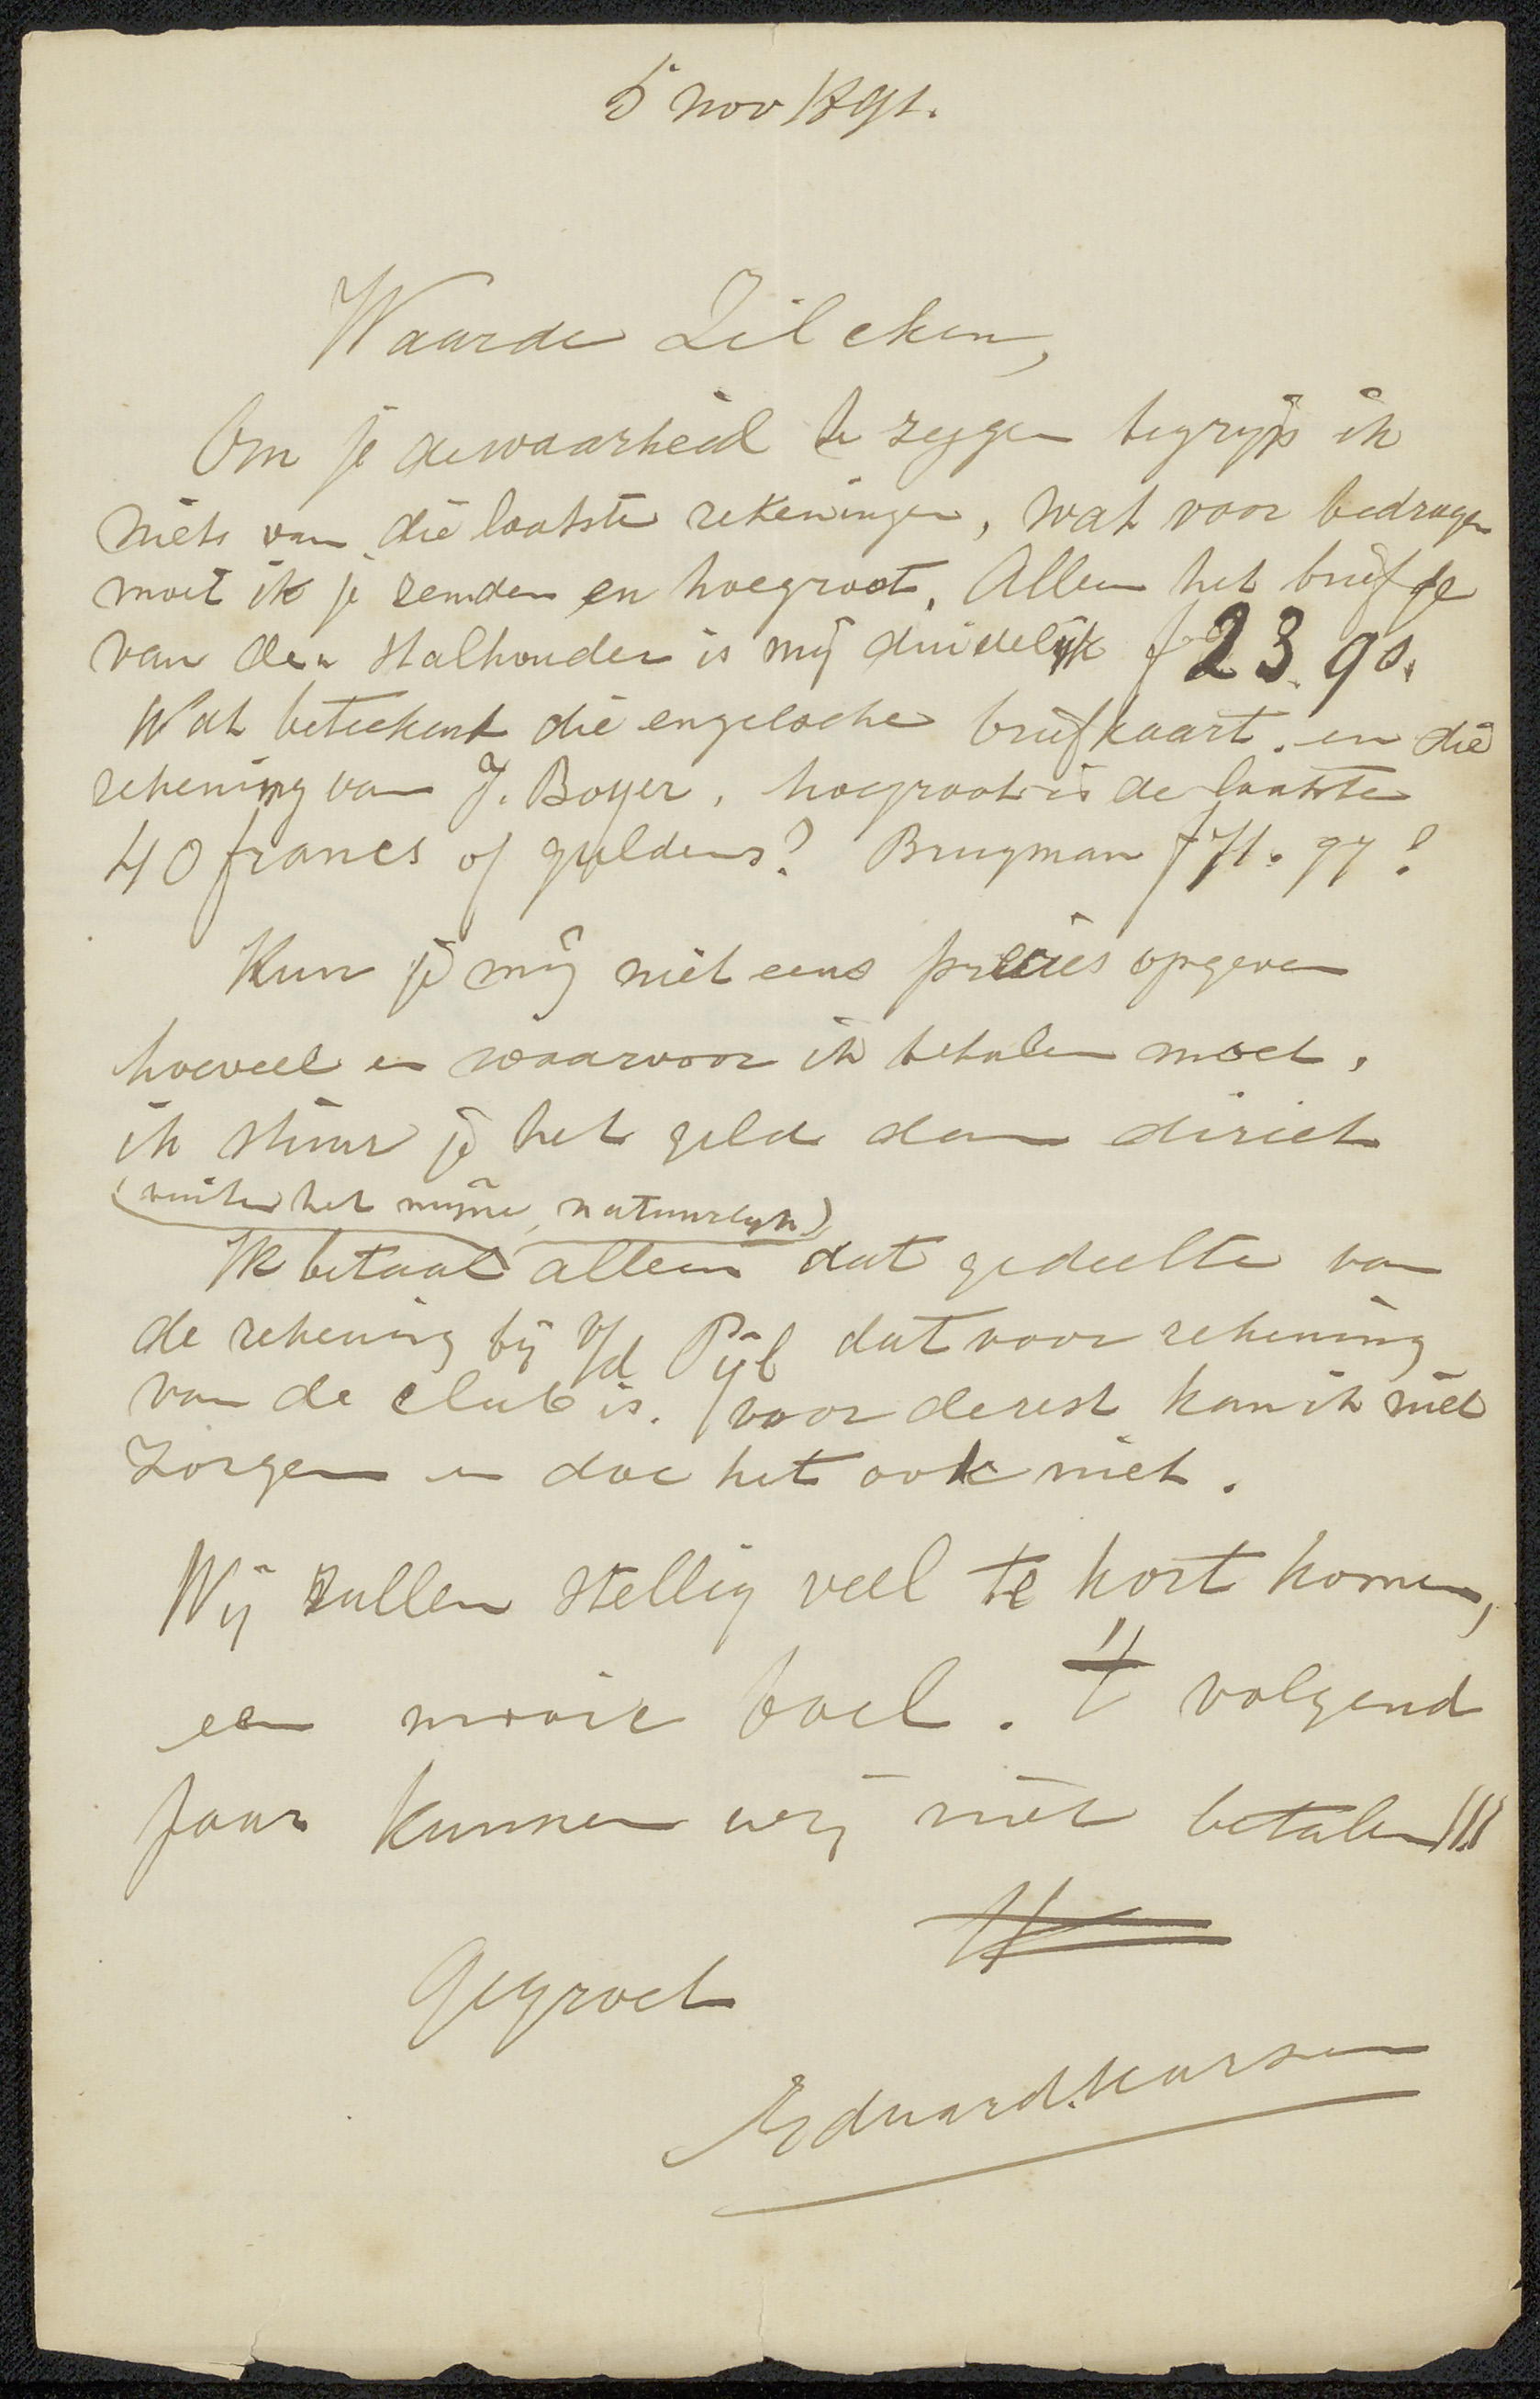 5 nov 1891.
Waarde Zilcken,
Om je de waarheid te zeggen begrijp ik
niets van die laatste rekeningen, wat voor bedragen
moet ik je zenden en hoegroot. Alleen het briefje
van den stalhouder is mij duidelijk f 23.90.
Wat beteekent die engelsche briefkaart. en die
rekening van J. Boyer. hoegroot is de laatste
40 francs of guldens? Brugman f 71.97?
Kun je mij niet eens precies opgeven
hoeveel en waarvoor ik betalen moet,
ik stuur je het geld dan direct
(buiten het mijne, natuurlijk)
Ik betaal alleen dat gedeelte van
de rekening bij v/d Pijl dat voor rekening
van de club is. voor de rest kan ik niet
zorgen en doe het ook niet.
Wij zullen stellig veel te kort komen,
een mooie boel. 't volgend
Jaar kunnen wij niet betalen!!!
Gegroet
Eduard. Karsen